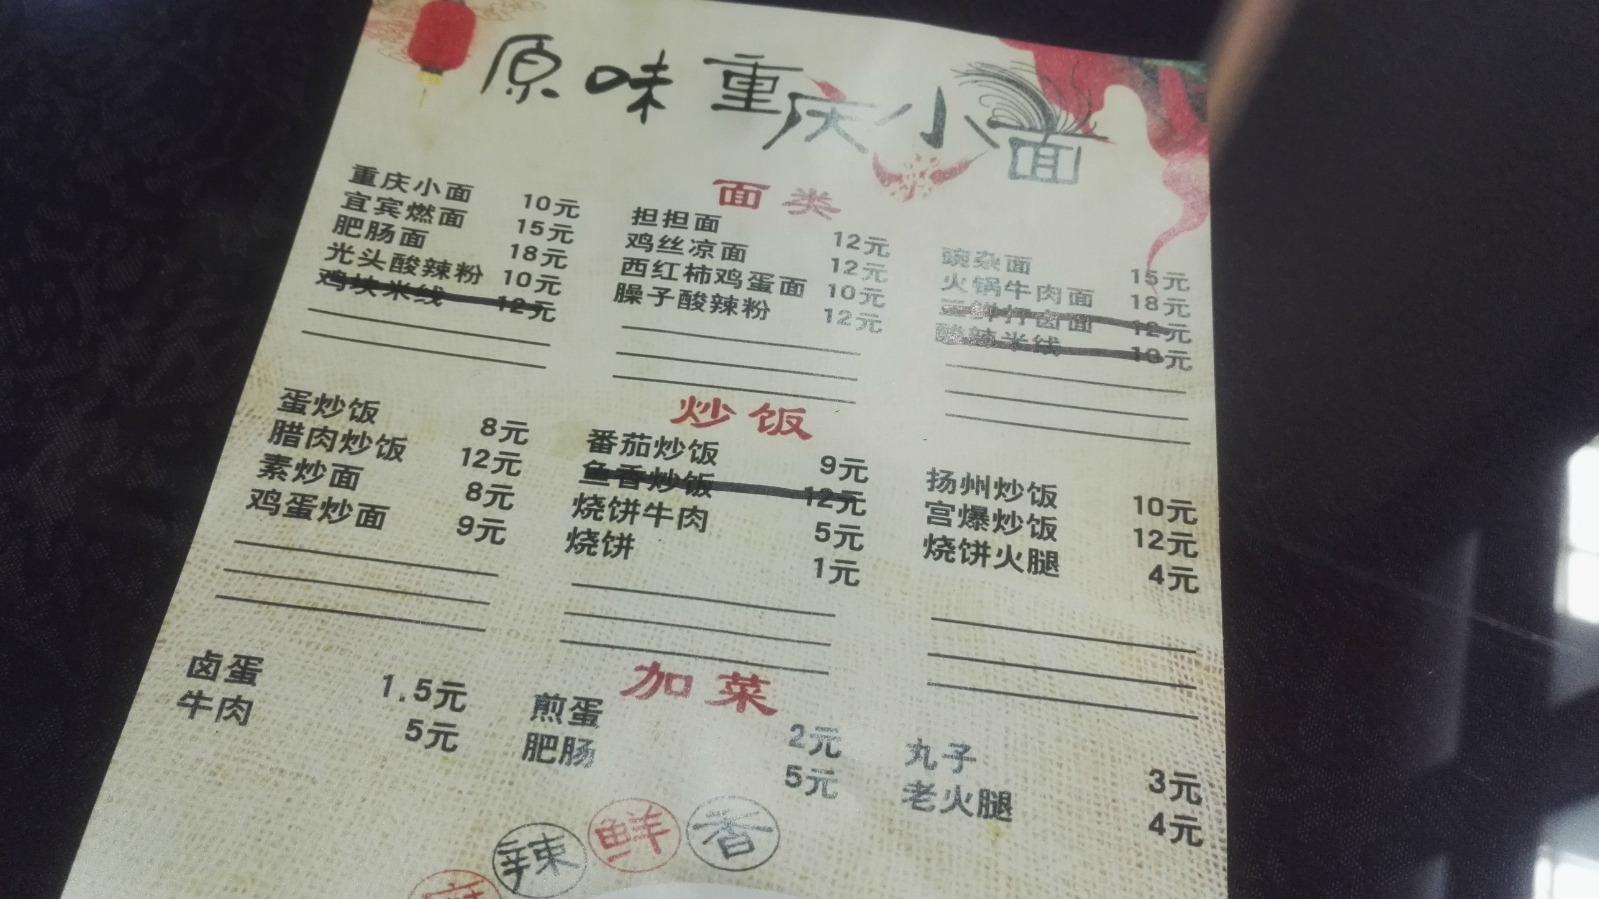 原味重庆小面
面类
重庆小面 10元
宜宾燃面 15元
肥肠面 18元
光头酸辣粉 10元
鸡块米线 12元
担担面 12元
鸡丝凉面 12元
西红柿鸡蛋面 10元
臊子酸辣粉 12元
豌杂面 15元
火锅牛肉面 18元
三鲜打卤面 12元
酸辣米线 10元
炒饭
蛋炒饭 8元
腊肉炒饭 12元
素炒面 8元
鸡蛋炒面 9元
番茄炒饭 9元
鱼香炒饭 12元
烧饼牛肉 5元
烧饼 1元
扬州炒饭 10元
宫爆炒饭 12元
烧饼火腿 4元
加菜
卤蛋 1.5元
牛肉 5元
煎蛋 2元
肥肠 5元
丸子 3元
老火腿 4元
辣鲜香